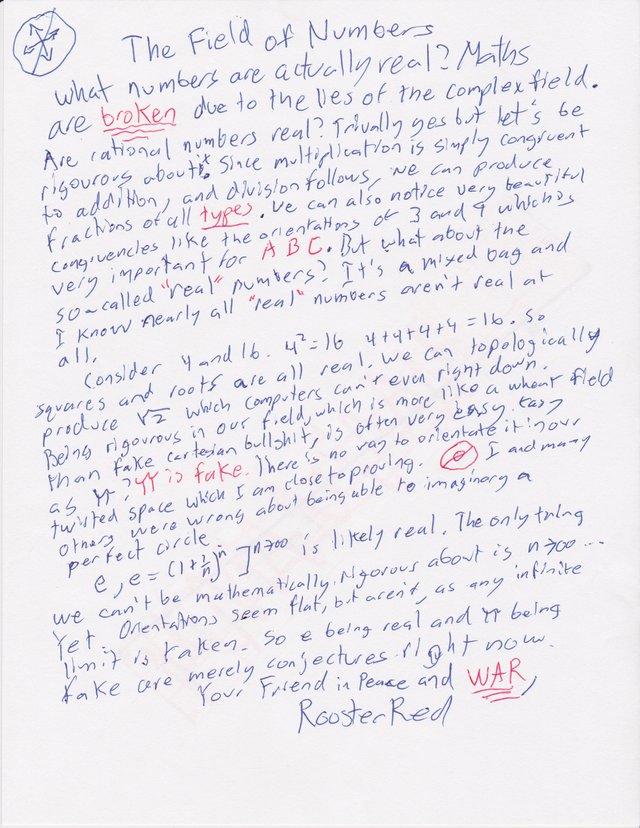 The Field of Numbers
What numbers are actually real? Maths
are broken due to the lies of the complex field.
Are rational numbers real? Trivally yes but let's be
rigourous about it. Since multiplication is simply congruent
to addition, and division follows, we can produce
fractions of all types. We can also notice very beautiful
congruencies like the orientations of 3 and 4 which is
very important for A B C. But what about the
so-called "real" numbers? It's a mixed bag and
I know nearly all "real" numbers aren't real at
all.
Consider 4 and 16. 4²=16 4+4+4+4=16. So
squares and roots are all real. We can topologically
produce √2 which computers can't even right down.
Being rigourous in our field, which is more like a wheat field
than fake cartesian bullshit, is often very easy. Easy
as π? π is fake. There is no way to orientate it in our
twisted space which I am close to proving. I and many
others were wrong about being able to imaginary a
perfect circle
e, e = (1+1/n)^n ] n→∞ is likely real. The only thing
we can't be mathematically rigorous about is n→∞ ...
Yet. Orientations seem flat, but aren't, as any infinite
limit is taken. So e being real and π being
fake are merely conjectures right now.
Your Friend in Peace and WAR,
RoosterRed